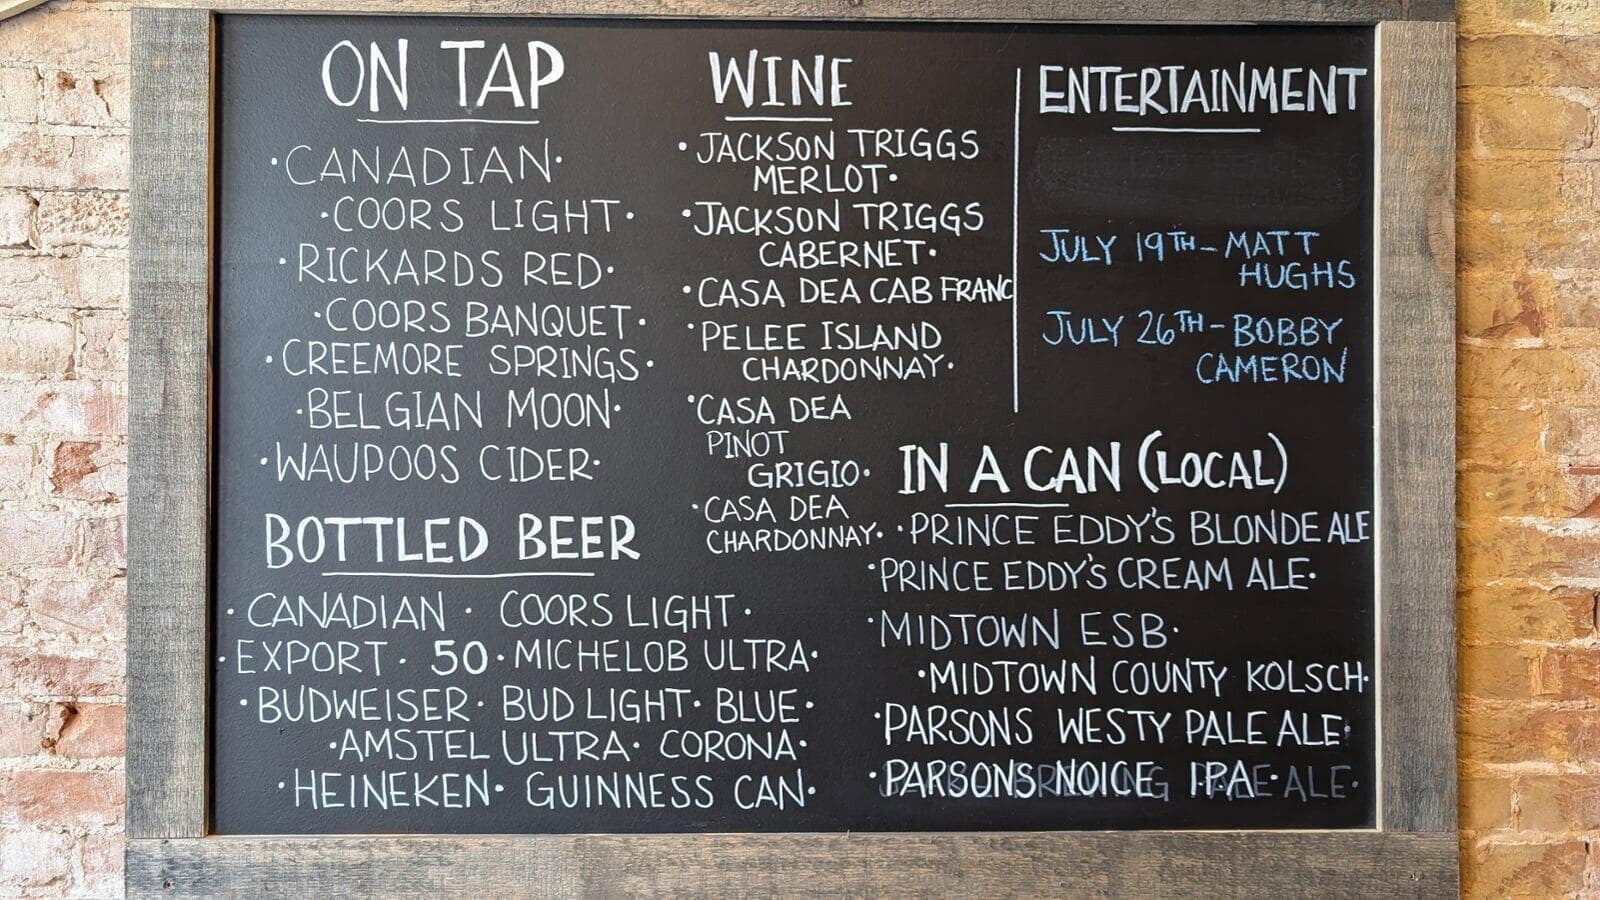 ON TAP
·CANADIAN·
·COORS LIGHT·
·RICKARDS RED·
·COORS BANQUET·
·CREEMORE SPRINGS·
·BELGIAN MOON·
·WAUPOOS CIDER·
BOTTLED BEER
·CANADIAN · COORS LIGHT·
·EXPORT· 50·MICHELOB ULTRA·
·BUDWEISER· BUD LIGHT· BLUE·
·AMSTEL ULTRA· CORONA·
·HEINEKEN· GUINNESS CAN·
WINE
·JACKSON TRIGGS
MERLOT·
·JACKSON TRIGGS
CABERNET·
·CASA DEA CAB FRANC
·PELEE ISLAND
CHARDONNAY·
·CASA DEA
PINOT
GRIGIO·
·CASA DEA
CHARDONNAY·
ENTERTAINMENT
JULY 19TH-MATT
HUGHS
JULY 26TH-BOBBY
CAMERON
IN A CAN (LOCAL)
·PRINCE EDDY'S BLONDE ALE
·PRINCE EDDY'S CREAM ALE·
·MIDTOWN ESB·
·MIDTOWN COUNTY KOLSCH·
·PARSONS WESTY PALE ALE·
·PARSONS NOICE IPA·